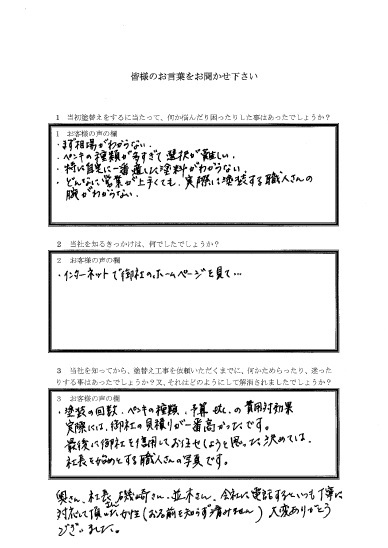 皆様のお言葉をお聞かせ下さい
1 当初塗替えをするに当たって、何か悩んだり困ったりした事はあったでしょうか?
1 お客様の声の欄
・まず相場がわからない。
・ペンキの種類が多すぎて選択が難しい。
・特に自宅に一番適した塗料がわからない。
・どんなに営業が上手くても、実際に塗装する職人さんの
腕がわからない。
2 当社を知るきっかけは、何でしたでしょうか?
2 お客様の声の欄
・インターネットで御社のホームページを見て…
3 当社を知ってから、塗替え工事を依頼いただくまでに、何かためらったり、迷った
りする事はあったでしょうか?又、それはどのようにして解消されましたでしょうか?
3 お客様の声の欄
・塗装の回数、ペンキの種類、予算 の費用対効果
実際には、御社の見積りが一番高かったです。
最後に御社を信用してお任せしようと思った決めては、
社長を始めとする職人さんの写真です。
奥さん、社長、磯崎さん、並木さん、会社に電話するといつも丁寧に
対応して頂いた女性(お名前を知らず済みません)大変ありがとう
ございました。